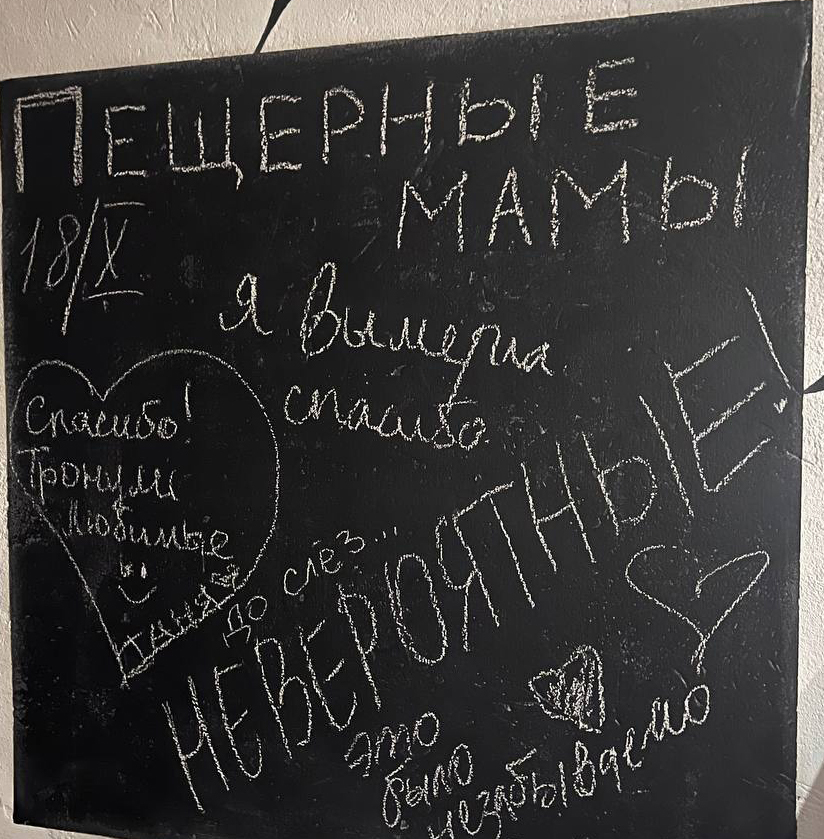 ПЕЩЕРНЫЕ
МАМЫ
18/X
я вымерла
спасибо
Спасибо!
Тронули
Любимые
ТАНЯ
до слёз...
НЕВЕРОЯТНЫЕ!
это
было
незабываемо